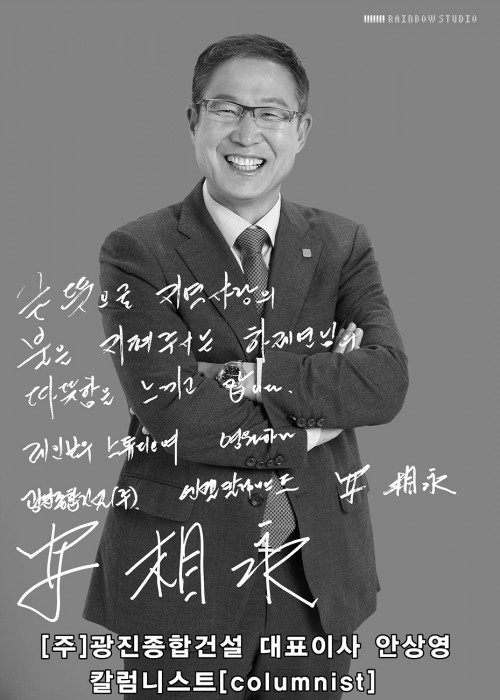 RAINBOW STUDIO
큰 뜻으로 지역사랑의
붓을 지펴주시는
따뜻함을 느끼고 갑니다.
레인보우 스튜디오여 영원하라
광진종합건설(주). 安相永
安相永
[주]광진종합건설 대표이사 안상영
칼럼니스트[columnist]